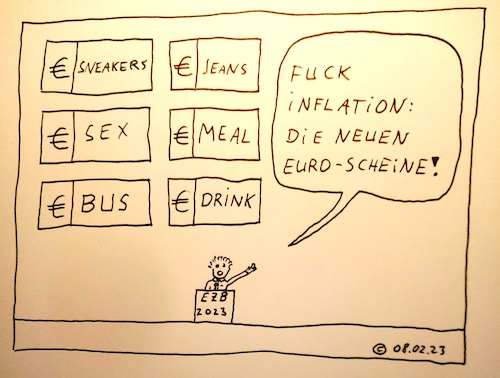 € SNEAKERS
€ JEANS
€ SEX
€ MEAL
€ BUS
€ DRINK
FUCK
INFLATION:
DIE NEUEN
EURO-SCHEINE!
EZB
2023
© 08.02.23